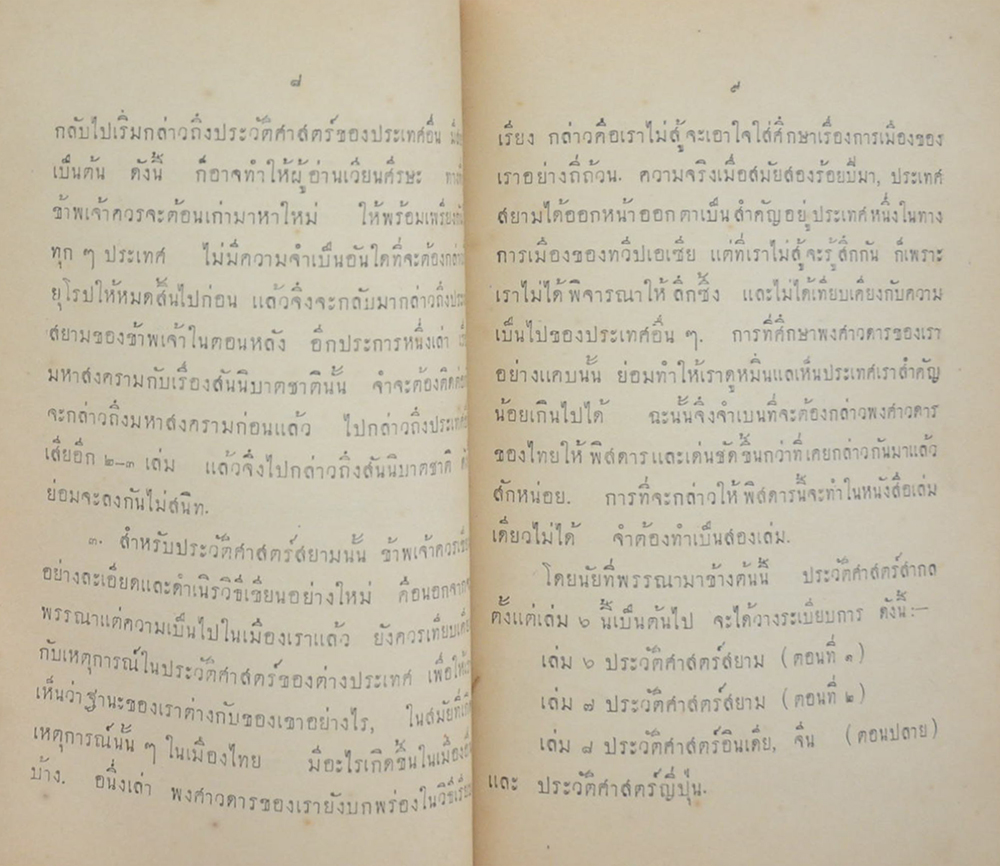 ๘
กลับไปเริ่มกล่าวถึงประวัติศาสตร์ของประเทศอื่น
เป็นต้น ดังนี้ ก็อาจทำให้ผู้อ่านเวียนศีรษะ
ข้าพเจ้าควรจะต้องเก่ามาหาใหม่ ให้พร้อมเพรียง
ทุก ๆ ประเทศ ไม่มีความจำเป็นอันใดที่จะต้อง
ยุโรปให้หมดสิ้นไปก่อน แล้วจึงจะกลับมากล่าวถึง
สยามของข้าพเจ้าในตอนหลัง อีกประการหนึ่งเล่า
มหาสงครามกับเรื่องสันนิบาตชาตินั้น จำจะต้อง
จะกล่าวถึงมหาสงครามก่อนแล้ว ไปกล่าวถึง
เสียอีก ๒–๓ เล่ม แล้วจึงไปกล่าวถึงสันนิบาตชาติ
ย่อมจะลงกันไม่สนิท.
๓. สำหรับประวัติศาสตร์สยามนั้น ข้าพเจ้าควร
อย่างละเอียดและดำเนิรวิธีเขียนอย่างใหม่ คือนอกจาก
พรรณาแต่ความเป็นไปในเมืองเราแล้ว ยังควรเทียบ
กับเหตุการณ์ในประวัติศาสตร์ของต่างประเทศ เพื่อ
เห็นว่าฐานะของเราต่างกับของเขาอย่างไร, ในสมัยที่
เหตุการณ์นั้น ๆ ในเมืองไทย มีอะไรเกิดขึ้นในเมือง
บ้าง. อนึ่งเล่า พงศาวดารของเรายังบกพร่องในวิธี
๙
เรียง กล่าวคือเราไม่สู้จะเอาใจใส่ศึกษาเรื่องการเมืองของ
เราอย่างถี่ถ้วน. ความจริงเมื่อสมัยสองร้อยปีมา, ประเทศ
สยามได้ออกหน้าออกตาเป็นสำคัญอยู่ประเทศหนึ่งในทาง
การเมืองของทวีปเอเซีย แต่ที่เราไม่สู้จะรู้สึกกัน ก็เพราะ
เราไม่ได้พิจารณาให้ลึกซึ้ง และไม่ได้เทียบเคียงกับความ
เป็นไปของประเทศอื่น ๆ. การที่ศึกษาพงศาวดารของเรา
อย่างแคบนั้น ย่อมทำให้เราดูหมิ่นแลเห็นประเทศเราสำคัญ
น้อยเกินไปได้ ฉะนั้นจึงจำเบนที่จะต้องกล่าวพงศาวดาร
ของไทยให้พิสดารและเด่นชัดขึ้นกว่าที่เคยกล่าวกันมาแล้ว
สักหน่อย. การที่จะกล่าวให้พิสดารนี้จะทำในหนังสือเล่ม
เดียวไม่ได้ จำต้องทำเป็นสองเล่ม.
โดยนัยที่พรรณามาข้างต้นนี้ ประวัติศาสตร์สากล
ตั้งแต่เล่ม ๖ นี้เป็นต้นไป จะได้วางระเบียบการ ดังนี้:—
เล่ม ๖ ประวัติศาสตร์สยาม (ตอนที่ ๑)
เล่ม ๗ ประวัติศาสตร์สยาม (ตอนที่ ๒)
เล่ม ๘ ประวัติศาสตร์อินเดีย, จีน (ตอนปลาย)
และ ประวัติศาสตร์ญี่ปุ่น.